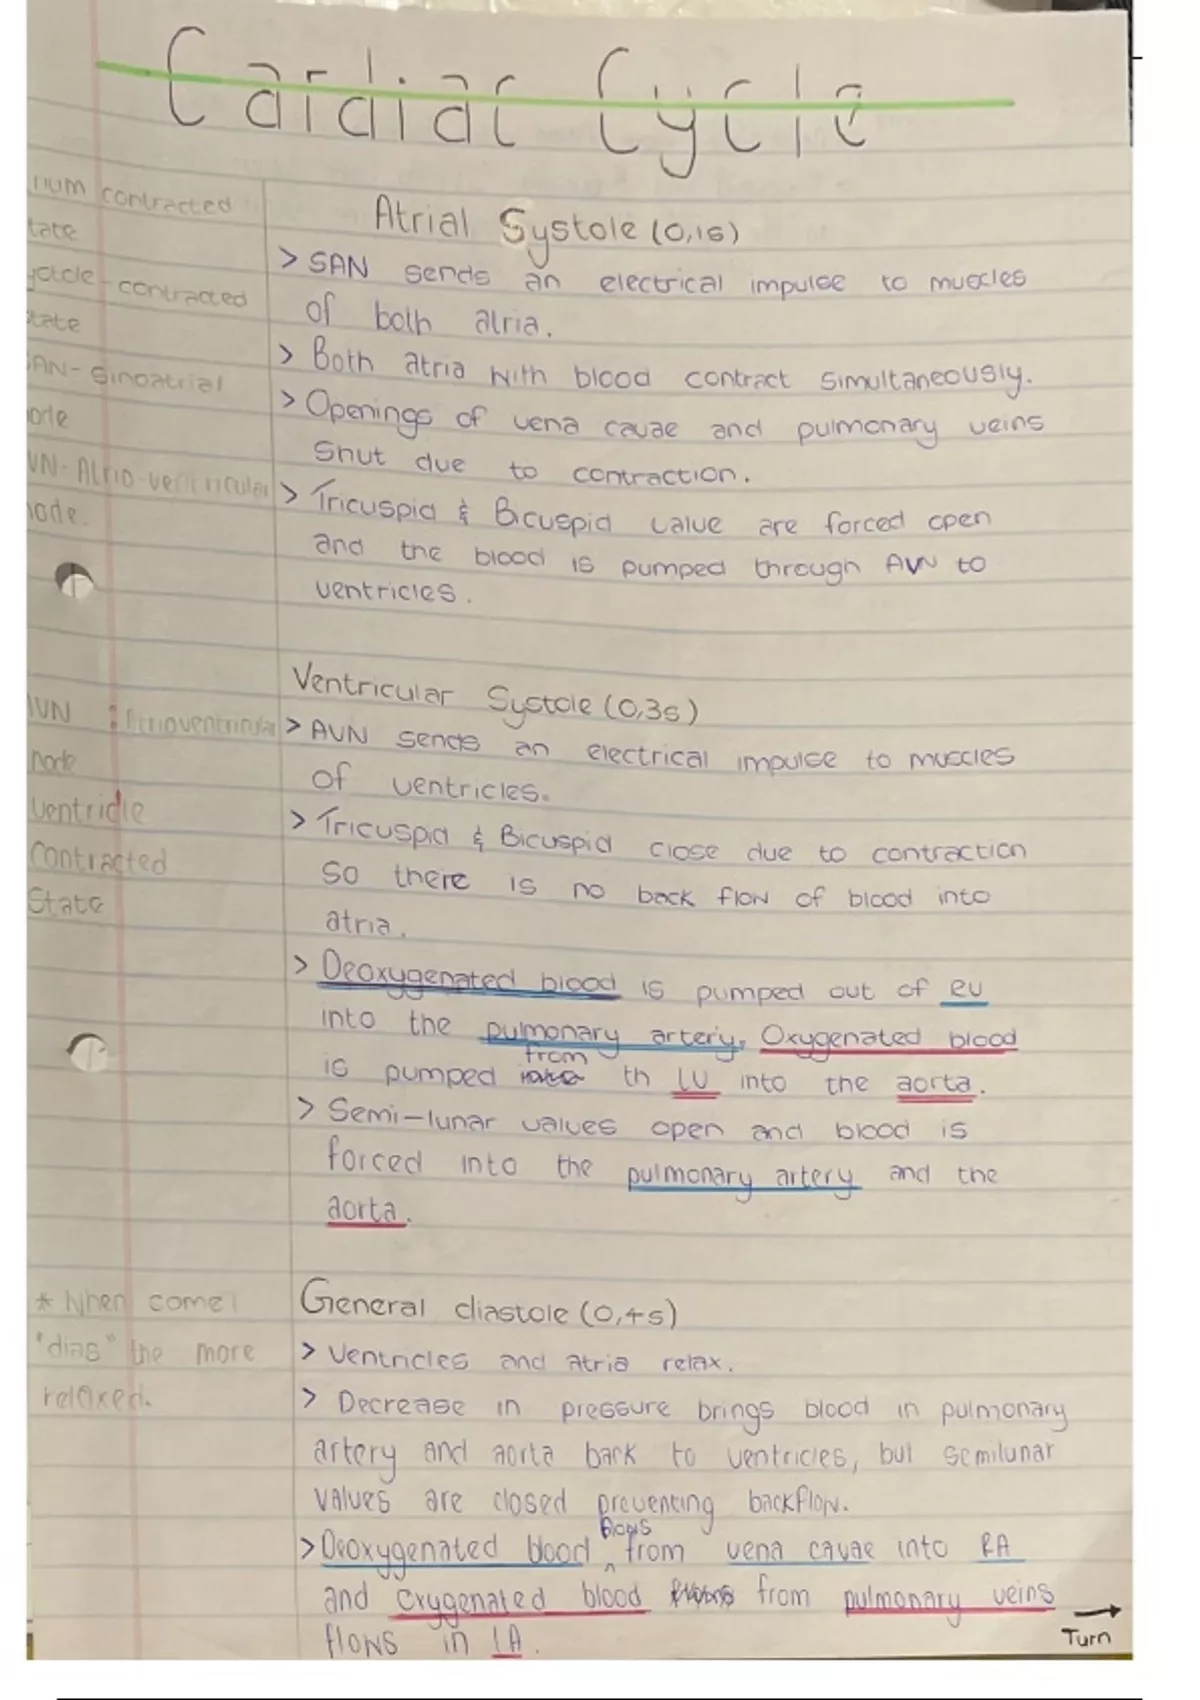 Cardiac Cycle
num contracted
tate
contracted
tate
AN- Sinoatrial
ode
VN- Atrio-ventricular
node.
Atrial Systole (0,1s)
> SAN sends an electrical impulse to muscles
of both atria.
> Both atria with blood contract simultaneously.
> Openings of vena cavae and pulmonary veins
shut due to contraction.
> Tricuspid & Bicuspid valve are forced open
and the blood is pumped through AVN to
ventricles.
AVN : Atrioventricular
node
Ventricle
Contracted
State
Ventricular Systole (0,3s)
> AVN sends an electrical impulse to muscles
of ventricles.
> Tricuspid & Bicuspid close due to contraction
so there is no back flow of blood into
atria.
> Deoxygenated blood is pumped out of RV
into the pulmonary artery, Oxygenated blood
is pumped from th LV into the aorta.
> Semi-lunar values open and blood is
forced into the pulmonary artery and the
aorta.
* When come
"dias" the more
relaxed.
General diastole (0,4s)
> Ventricles and atria relax.
> Decrease in pressure brings blood in pulmonary
artery and aorta back to ventricles, but semilunar
values are closed preventing backflow.
> Deoxygenated blood flows from vena cavae into RA
and oxygenated blood from pulmonary veins
flows in LA.
Turn